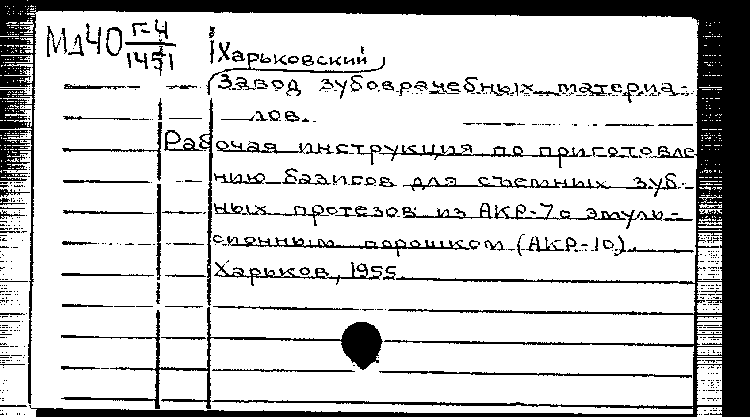 МД40 Г-4/1451
Харьковский
Завод зубоврачебных материа-
лов.
Рабочая инструкция по приготовле
нию базисов для съемных зуб-
ных протезов из АКР-7 с эмуль-
сионным порошком (АКР-10).
Харьков, 1955.